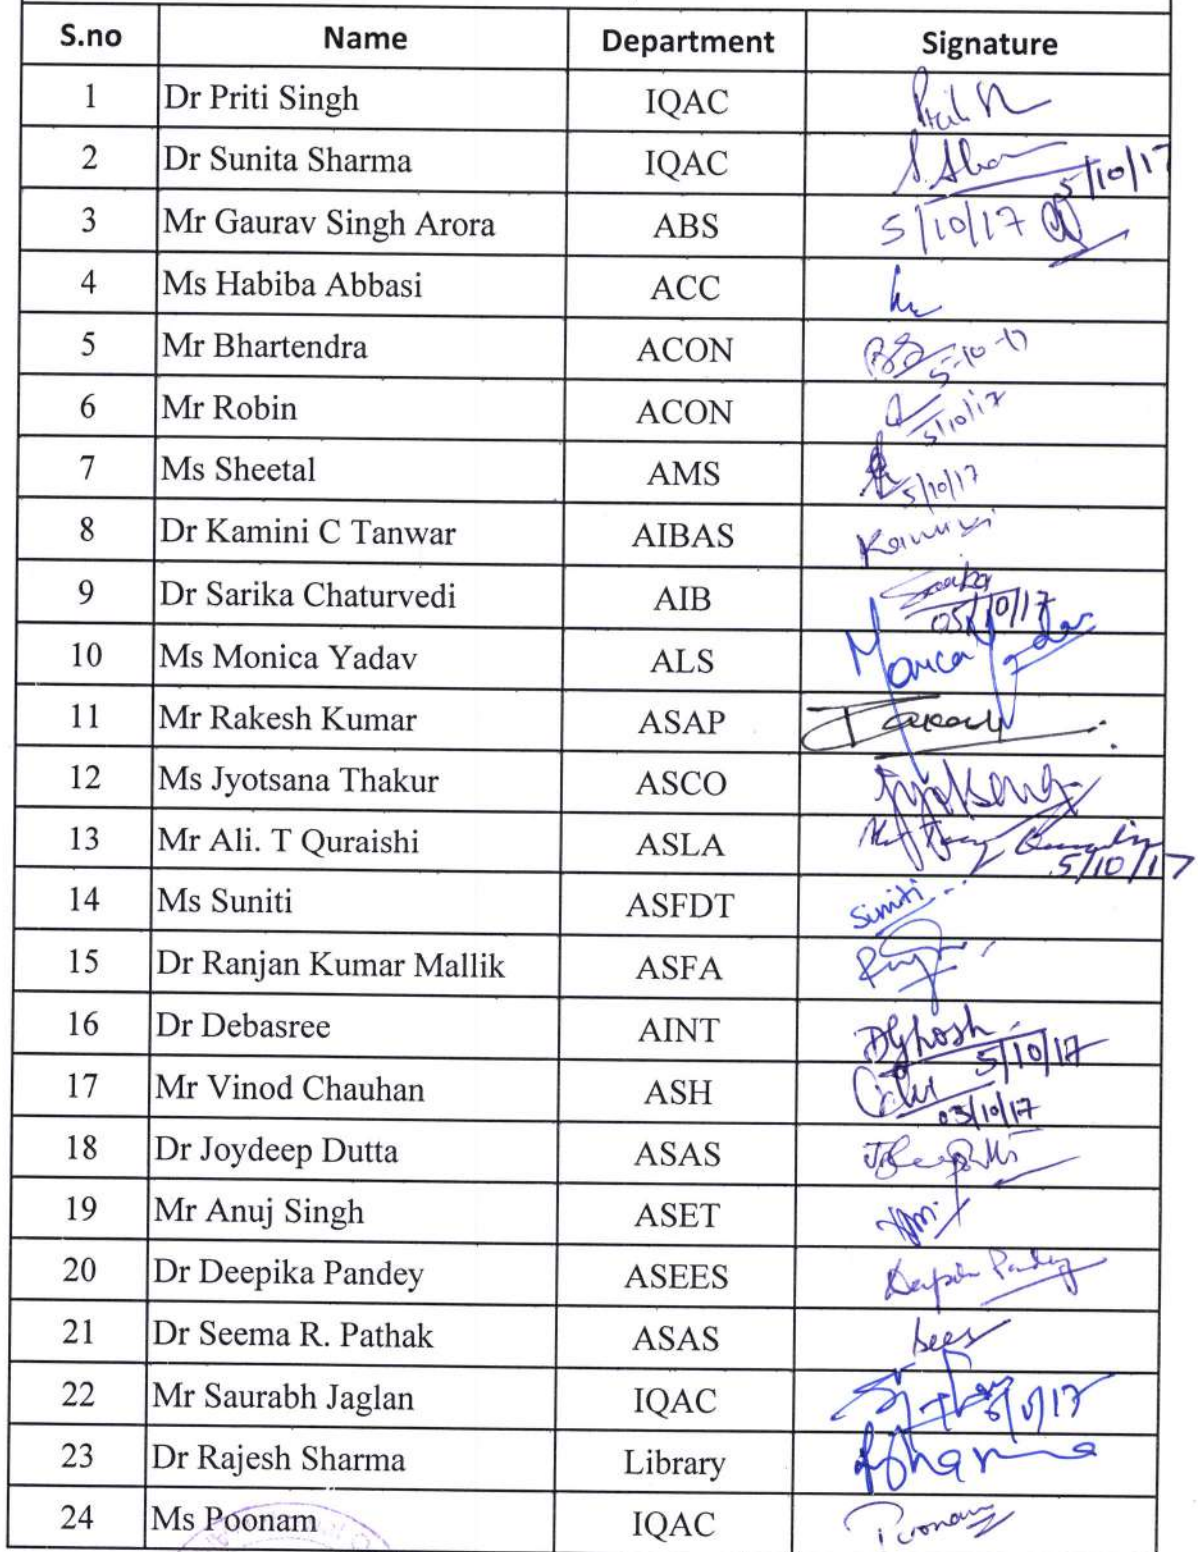 S.no Name Department Signature
1 Dr Priti Singh IQAC
2 Dr Sunita Sharma IQAC S. Sha 5/10/17
3 Mr Gaurav Singh Arora ABS 5/10/17
4 Ms Habiba Abbasi ACC
5 Mr Bhartendra ACON 5-10-17
6 Mr Robin ACON 5/10/17
7 Ms Sheetal AMS 5/10/17
8 Dr Kamini C Tanwar AIBAS Kamini
9 Dr Sarika Chaturvedi AIB 05/10/17
10 Ms Monica Yadav ALS Monica
11 Mr Rakesh Kumar ASAP
12 Ms Jyotsana Thakur ASCO
13 Mr Ali. T Quraishi ASLA 5/10/17
14 Ms Suniti ASFDT Suniti
15 Dr Ranjan Kumar Mallik ASFA
16 Dr Debasree AINT DGhosh 5/10/17
17 Mr Vinod Chauhan ASH 05/10/17
18 Dr Joydeep Dutta ASAS
19 Mr Anuj Singh ASET
20 Dr Deepika Pandey ASEES Deepika Pandey
21 Dr Seema R. Pathak ASAS
22 Mr Saurabh Jaglan IQAC
23 Dr Rajesh Sharma Library RSharma
24 Ms Poonam IQAC Poonam